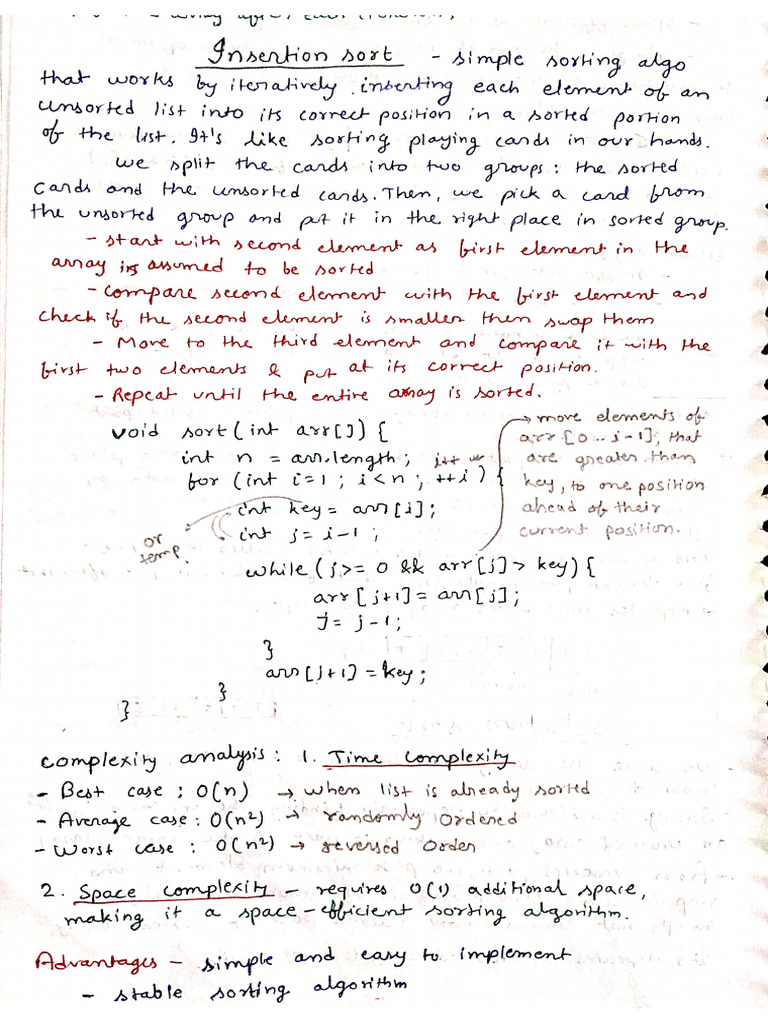 after each
Insertion sort - simple sorting algo
that works by iteratively inserting each element of an
unsorted list into its correct position in a sorted portion
of the list. It's like sorting playing cards in our hands.
we split the cards into two groups: the sorted
cards and the unsorted cards. Then, we pick a card from
the unsorted group and put it in the right place in sorted group.
- start with second element as first element in the
array is assumed to be sorted
- compare second element with the first element and
check if the second element is smaller then swap them
- Move to the third element and compare it with the
first two elements & put at its correct position.
- Repeat until the entire array is sorted.
void sort(int arr[]) {
int n = arr.length; i++
for (int i=1; i<n; ++i) {
int key = arr[i];
int j = i-1;
or
temp.
→ move elements of
arr[0...i-1], that
are greater than
key, to one position
ahead of their
current position.
while (j>=0 && arr[j] > key) {
arr[j+1] = arr[j];
j = j-1;
}
arr[j+1] = key;
}
}
complexity analysis: 1. Time complexity
- Best case: O(n) → when list is already sorted
- Average case: O(n²) → randomly ordered
- Worst case: O(n²) → reversed order
2. Space complexity - requires O(1) additional space,
making it a space-efficient sorting algorithm.
Advantages - simple and easy to implement
- stable sorting algorithm